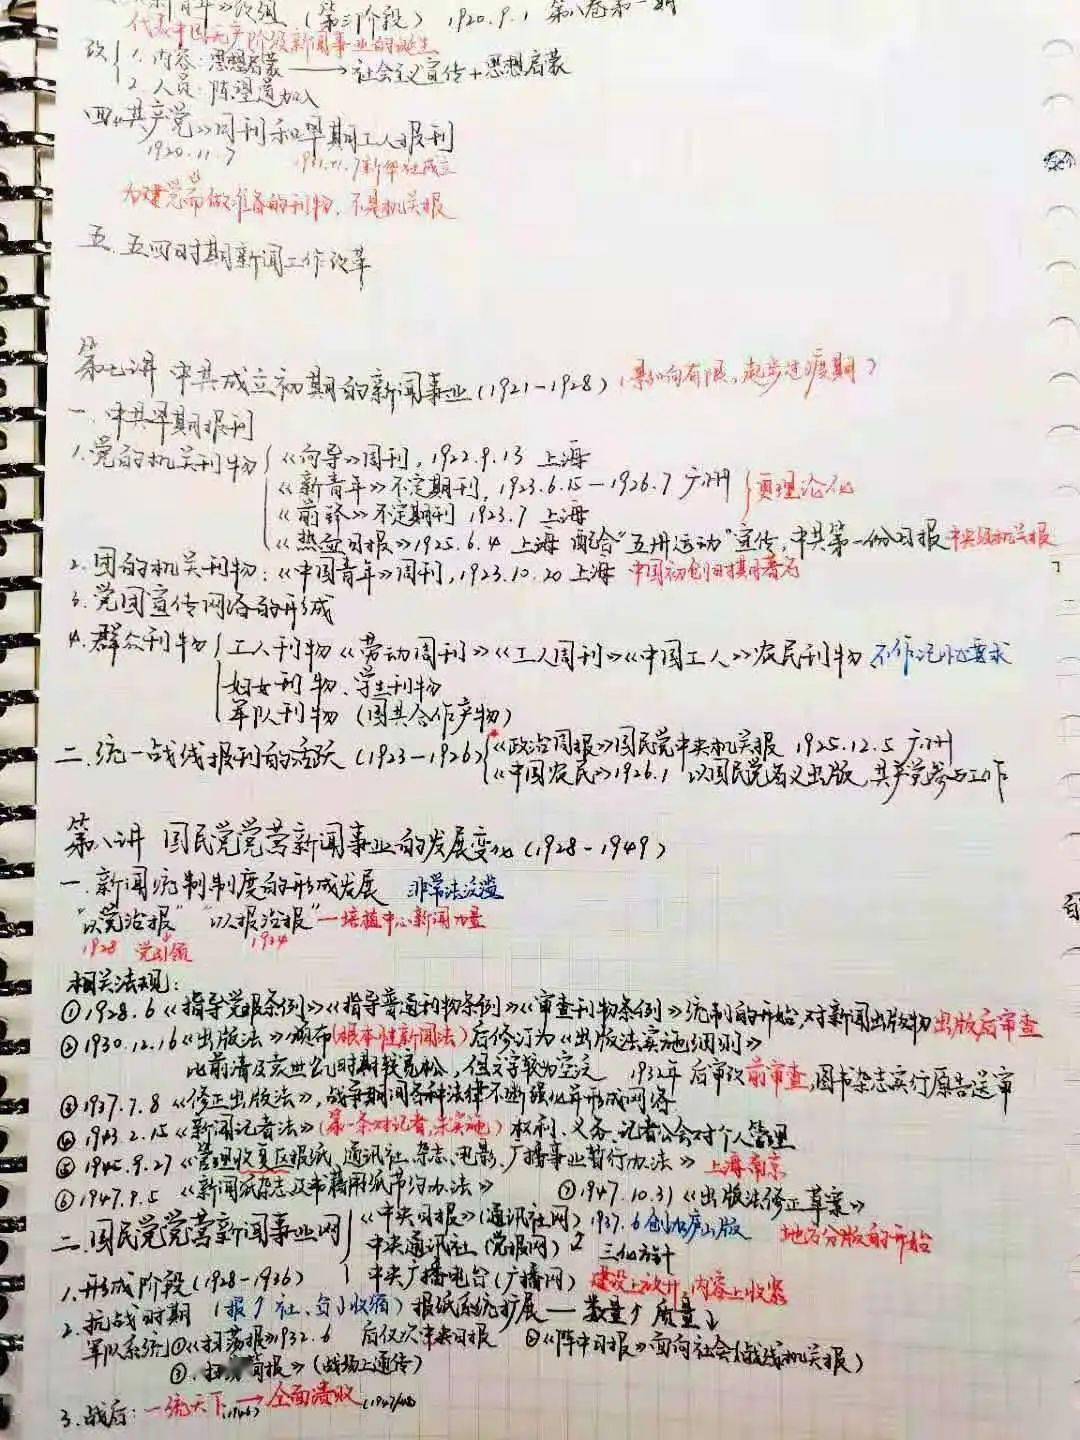 新青年》改组 (第三阶段) 1920.9.1 第八卷第一期
代表中国无产阶级新闻事业的诞生
改 1.内容:思想启蒙 → 社会主义宣传+思想启蒙
2.人员:陈望道加入
四.《共产党》月刊和早期工人报刊
1920.11.7 1931.11.7新华社成立
为建党而做准备的刊物,不是机关报
五.五四时期新闻工作改革
第七讲 中共成立初期的新闻事业(1921-1928)(影响有限,起步过渡期)
一.中共早期报刊
1.党的机关刊物 《向导》周刊,1922.9.13 上海
《新青年》不定期刊,1923.6.15-1926.7 广州 更理论化
《前锋》不定期刊 1923.7 上海
《热血日报》1925.6.4 上海 配合"五卅运动"宣传,中共第一份日报 中央级机关报
2.团的机关刊物:《中国青年》周刊,1923.10.20 上海
3.党团宣传网络的形成
4.群众刊物 工人刊物《劳动周刊》《工人周刊》《中国工人》农民刊物 不作记忆要求
妇女刊物、学生刊物
军队刊物(国共合作产物)
二.统一战线报刊的活跃(1923-1926)《政治周报》国民党中央机关报 1925.12.5 广州
《中国农民》1926.1 以国民党名义出版,共产党参与工作
第八讲 国民党党营新闻事业的发展变化(1928-1949)
一.新闻统制制度的形成发展 非常法泛滥
"以党治报" "以报治报"—培植中心新闻力量
1928 党引领 1934
相关法规:
①1928.6《指导党报条例》《指导普通刊物条例》《审查刊物条例》统制的开始,对新闻出版物出版后审查
②1930.12.16《出版法》颁布(根本性新闻法)后修订为《出版法实施细则》
比前清及袁世凯时期较宽松,但文字较为空泛 1932年 后审改前审查,图书杂志实行原告送审
③1937.7.8《修正出版法》,战争期间各种法律不断强化并形成网络
④1943.2.15《新闻记者法》(第一条对记者,未实施)权利、义务、记者公会对个人管理
⑤1945.9.27《管理收复区报纸、通讯社、杂志、电影、广播事业暂行办法》上海南京
⑥1947.9.5《新闻纸杂志及书籍用纸节约办法》 ⑦1947.10.31《出版法修正草案》
二.国民党党营新闻事业网 《中央日报》(通讯社网)1937.6创庐山版 地方分版的开始
中央通讯社(党报网)
1.形成阶段(1928-1936) 中央广播电台(广播网) 建设上放开,内容上收紧
2.抗战时期 (报↑社、台↓收缩)报纸系统扩展—数量↑质量↓
军队系统①《扫荡报》1932.6 后仅次中央日报 ②《阵中日报》面向社会(战线机关报)
③.扫荡简报》(战场上通传)
3.战后:一统天下(1946)→全面溃败(1947/48)